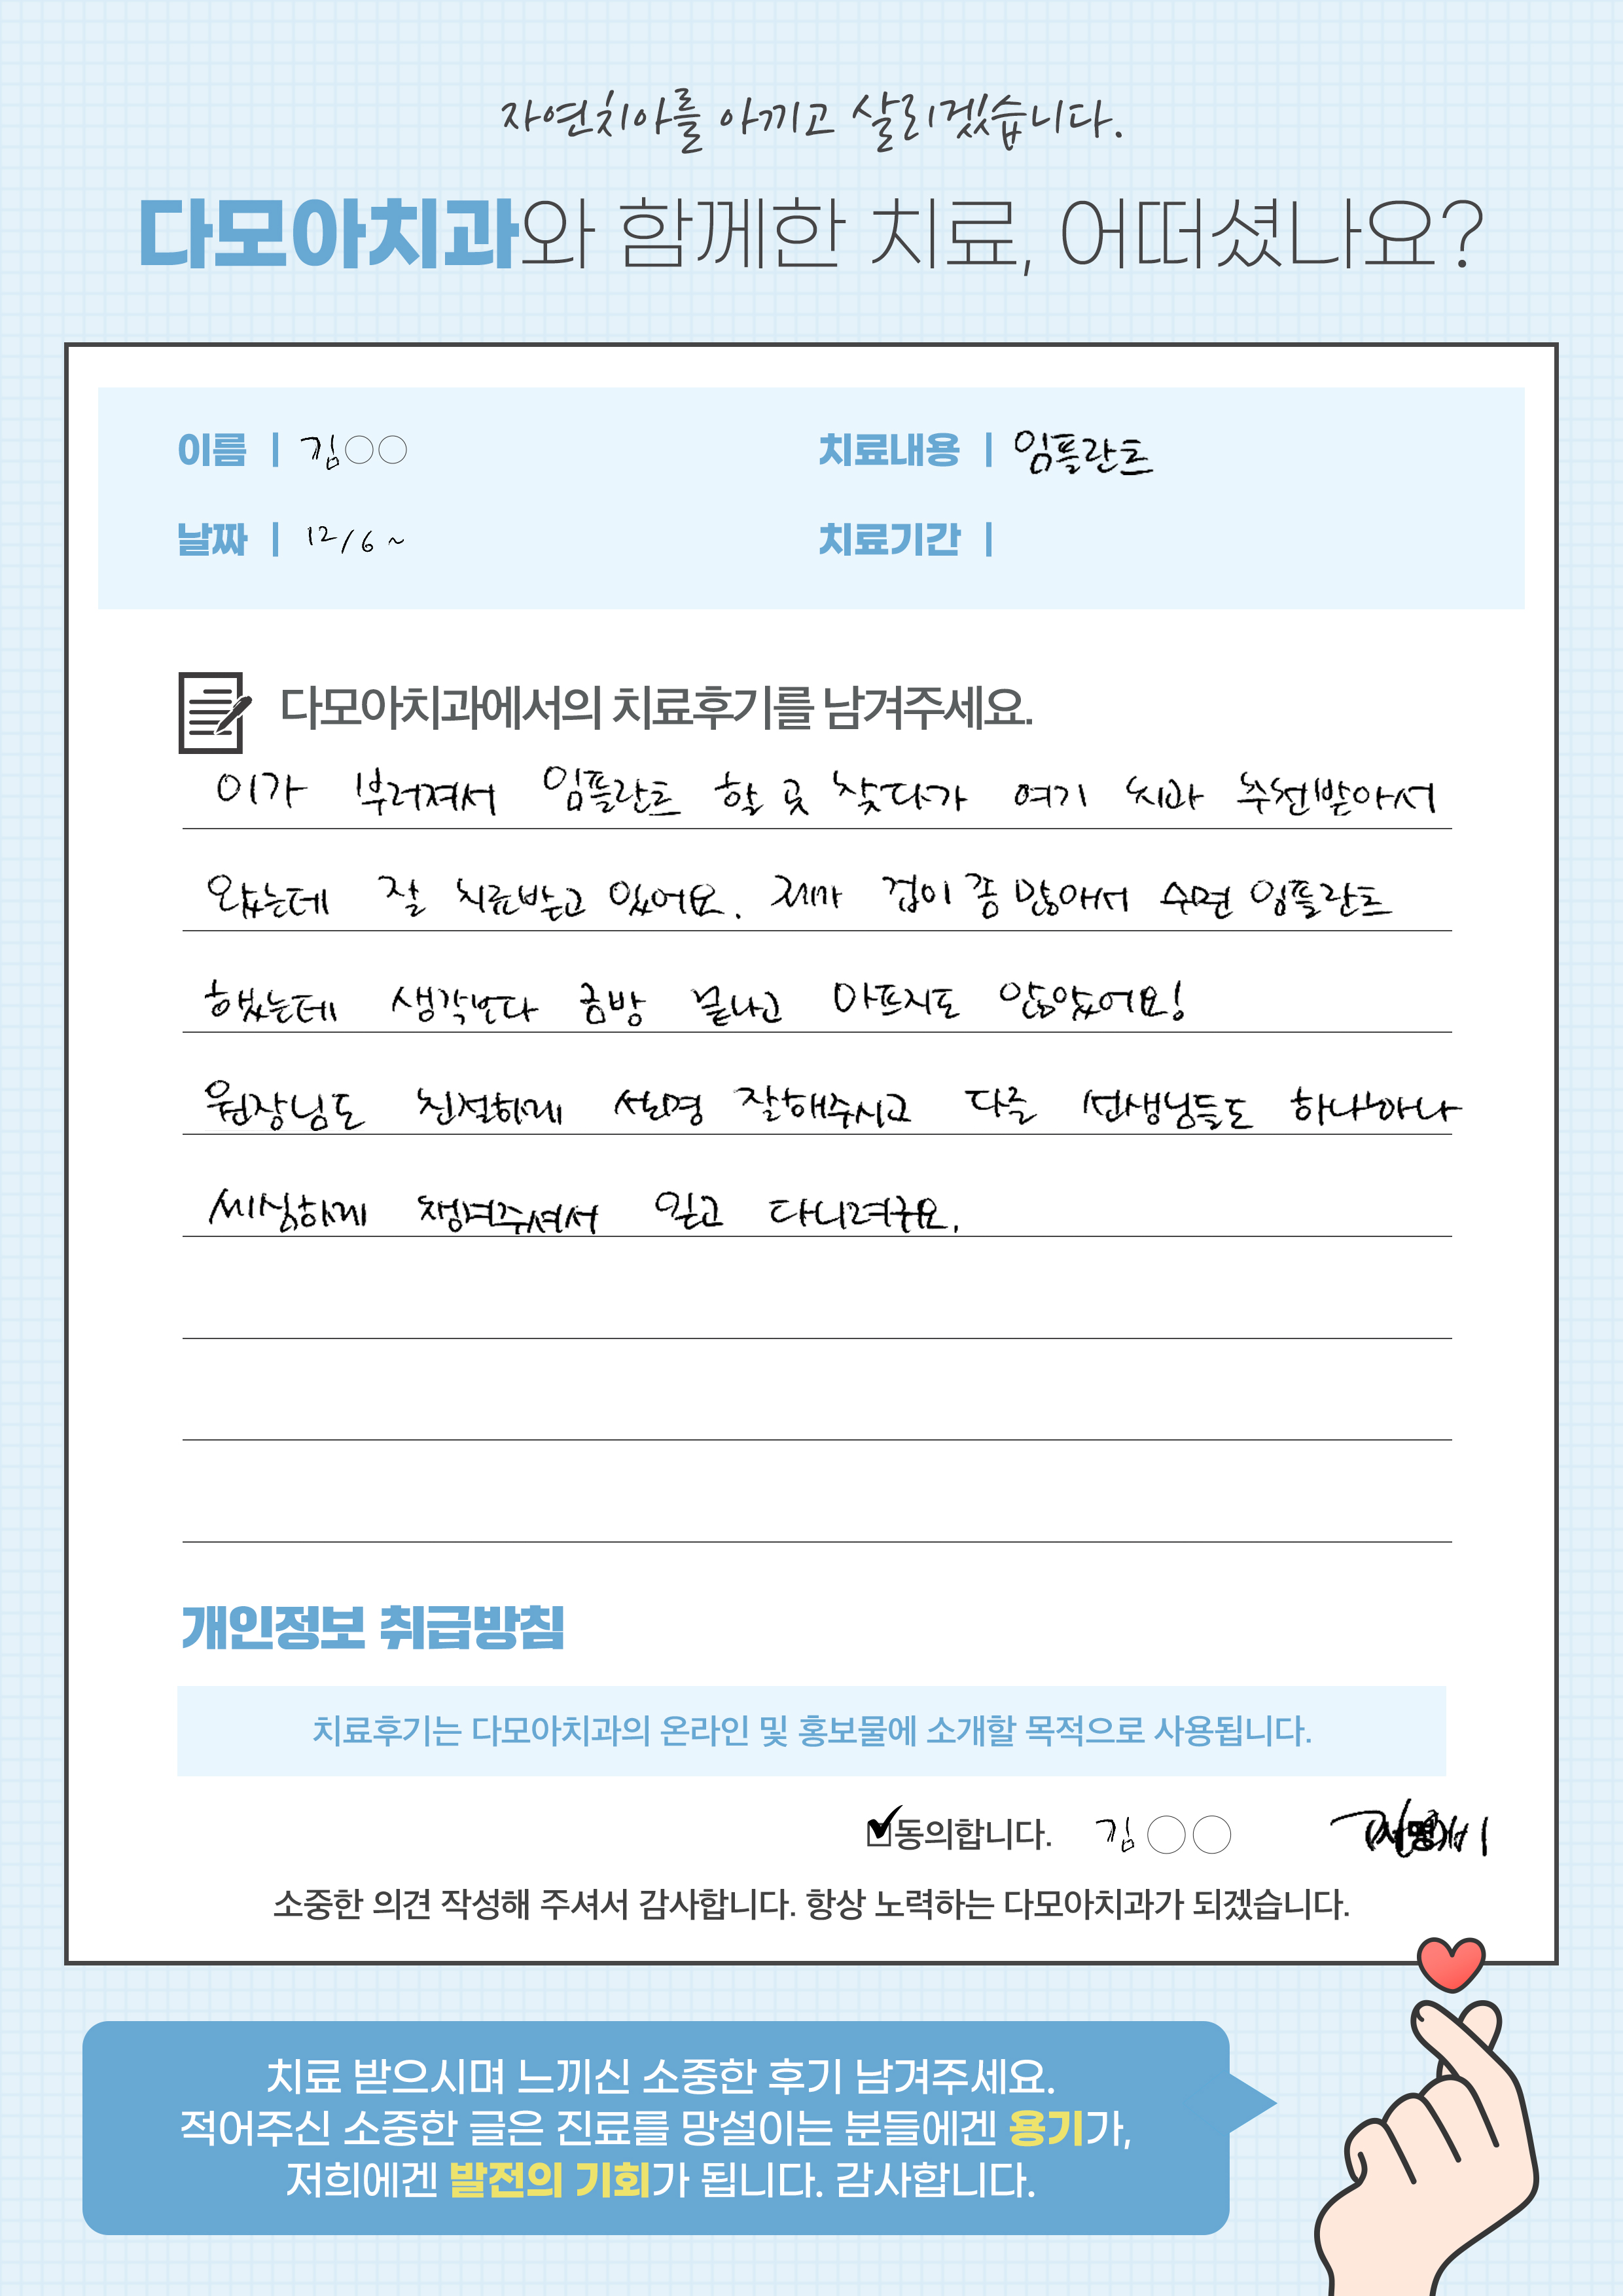 자연치아를 아끼고 살리겠습니다.
다모아치과와 함께한 치료, 어떠셨나요?
이름 | 김○○ 치료내용 | 임플란트
날짜 | 12/6 ~ 치료기간 |
다모아치과에서의 치료후기를 남겨주세요.
이가 부러져서 임플란트 할 곳 찾다가 여기 치과 추천받아서
왔는데 잘 치료받고 있어요. 제가 겁이 좀 많아서 수면 임플란트
했는데 생각보다 금방 끝나고 아프지도 않았어요!
원장님도 친절하게 설명 잘해주시고 다른 선생님들도 하나하나
세심하게 챙겨주셔서 믿고 다니려구요.
개인정보 취급방침
치료후기는 다모아치과의 온라인 및 홍보물에 소개할 목적으로 사용됩니다.
동의합니다. 김○○ (서명)
소중한 의견 작성해 주셔서 감사합니다. 항상 노력하는 다모아치과가 되겠습니다.
치료 받으시며 느끼신 소중한 후기 남겨주세요.
적어주신 소중한 글은 진료를 망설이는 분들에겐 용기가,
저희에겐 발전의 기회가 됩니다. 감사합니다.